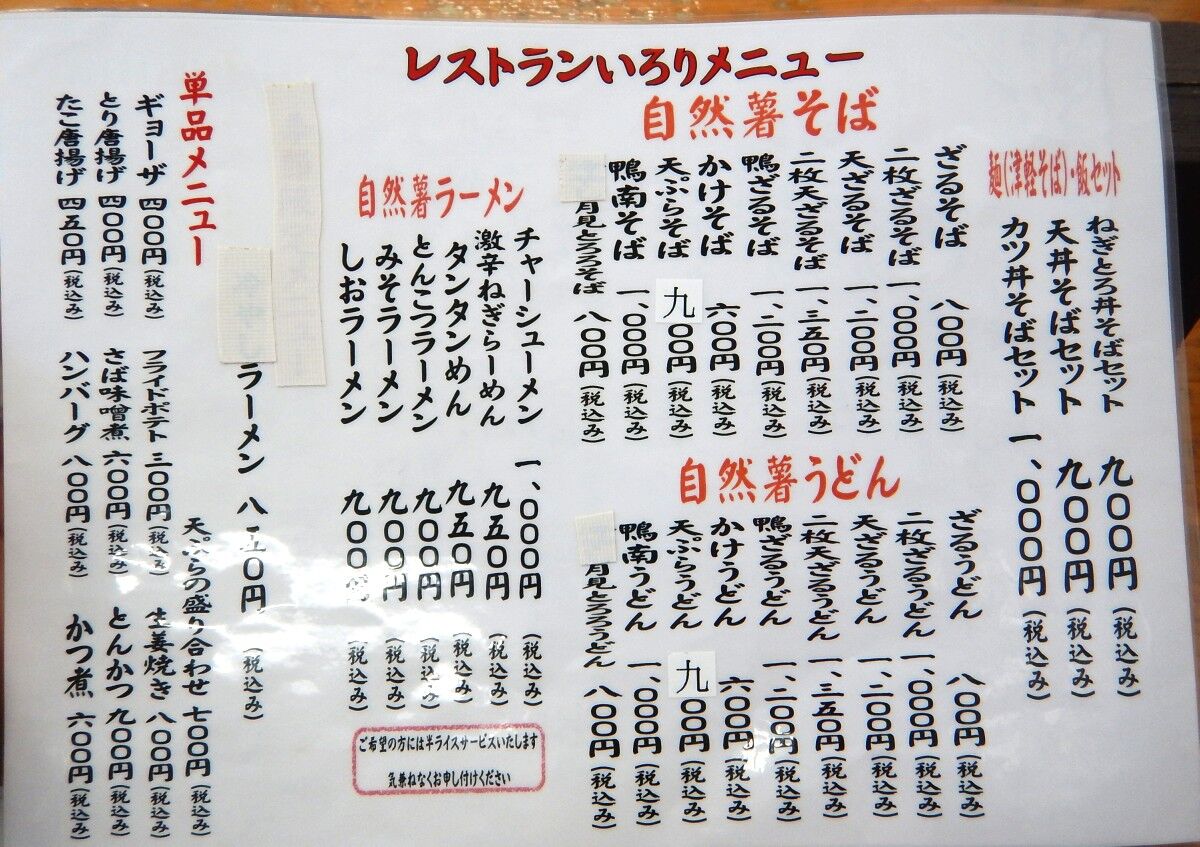 レストランいろりメニュー
麺(津軽そば)・飯セット
ねぎとろ丼そばセット 九〇〇円(税込み)
天丼そばセット 九〇〇円(税込み)
カツ丼そばセット 一、〇〇〇円(税込み)
自然薯そば
ざるそば 八〇〇円(税込み)
二枚ざるそば 一、〇〇〇円(税込み)
天ざるそば 一、二〇〇円(税込み)
二枚天ざるそば 一、三五〇円(税込み)
鴨ざるそば 一、二〇〇円(税込み)
かけそば 六〇〇円(税込み)
天ぷらそば 九〇〇円(税込み)
鴨南そば 一、〇〇〇円(税込み)
月見とろろそば 八〇〇円(税込み)
自然薯うどん
ざるうどん 八〇〇円(税込み)
二枚ざるうどん 一、〇〇〇円(税込み)
天ざるうどん 一、二〇〇円(税込み)
二枚天ざるうどん 一、三五〇円(税込み)
鴨ざるうどん 一、二〇〇円(税込み)
かけうどん 六〇〇円(税込み)
天ぷらうどん 九〇〇円(税込み)
鴨南うどん 一、〇〇〇円(税込み)
月見とろろうどん 八〇〇円(税込み)
自然薯ラーメン
チャーシューメン 一、〇〇〇円(税込み)
激辛ねぎらーめん 九五〇円(税込み)
タンタンめん 九五〇円(税込み)
とんこつラーメン 九〇〇円(税込み)
みそラーメン 九〇〇円(税込み)
しおラーメン 九〇〇円(税込み)
ラーメン 八五〇円(税込み)
ご希望の方には半ライスサービスいたします
気兼ねなくお申し付けください
単品メニュー
ギョーザ 四〇〇円(税込み)
とり唐揚げ 四〇〇円(税込み)
たこ唐揚げ 四五〇円(税込み)
フライドポテト 三〇〇円(税込み)
さば味噌煮 六〇〇円(税込み)
ハンバーグ 八〇〇円(税込み)
天ぷらの盛り合わせ 七〇〇円(税込み)
生姜焼き 八〇〇円(税込み)
とんかつ 九〇〇円(税込み)
かつ煮 六〇〇円(税込み)